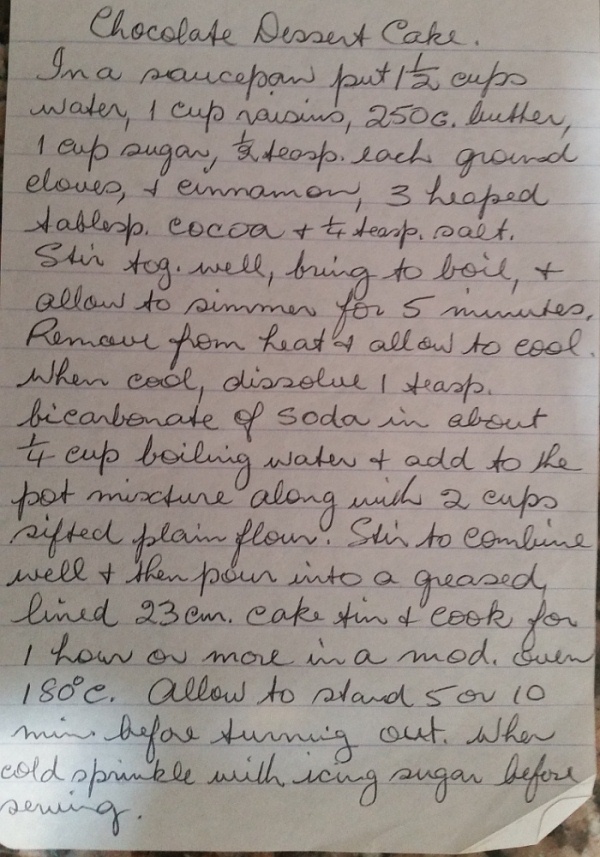 Chocolate Dessert Cake.
In a saucepan put 1 1/2 cups
water, 1 cup raisins, 250G. butter,
1 cup sugar, 1/2 teasp. each ground
cloves, + cinnamon, 3 heaped
tablesp. cocoa + 1/4 teasp. salt.
Stir tog. well, bring to boil, +
allow to simmer for 5 minutes.
Remove from heat + allow to cool.
When cool, dissolve 1 teasp.
bicarbonate of soda in about
1/4 cup boiling water + add to the
pot mixture along with 2 cups
sifted plain flour. Stir to combine
well + then pour into a greased,
lined 23cm. cake tin + cook for
1 hour or more in a mod. oven
180°c. Allow to stand 5 or 10
min. before turning out. When
cold sprinkle with icing sugar before
serving.